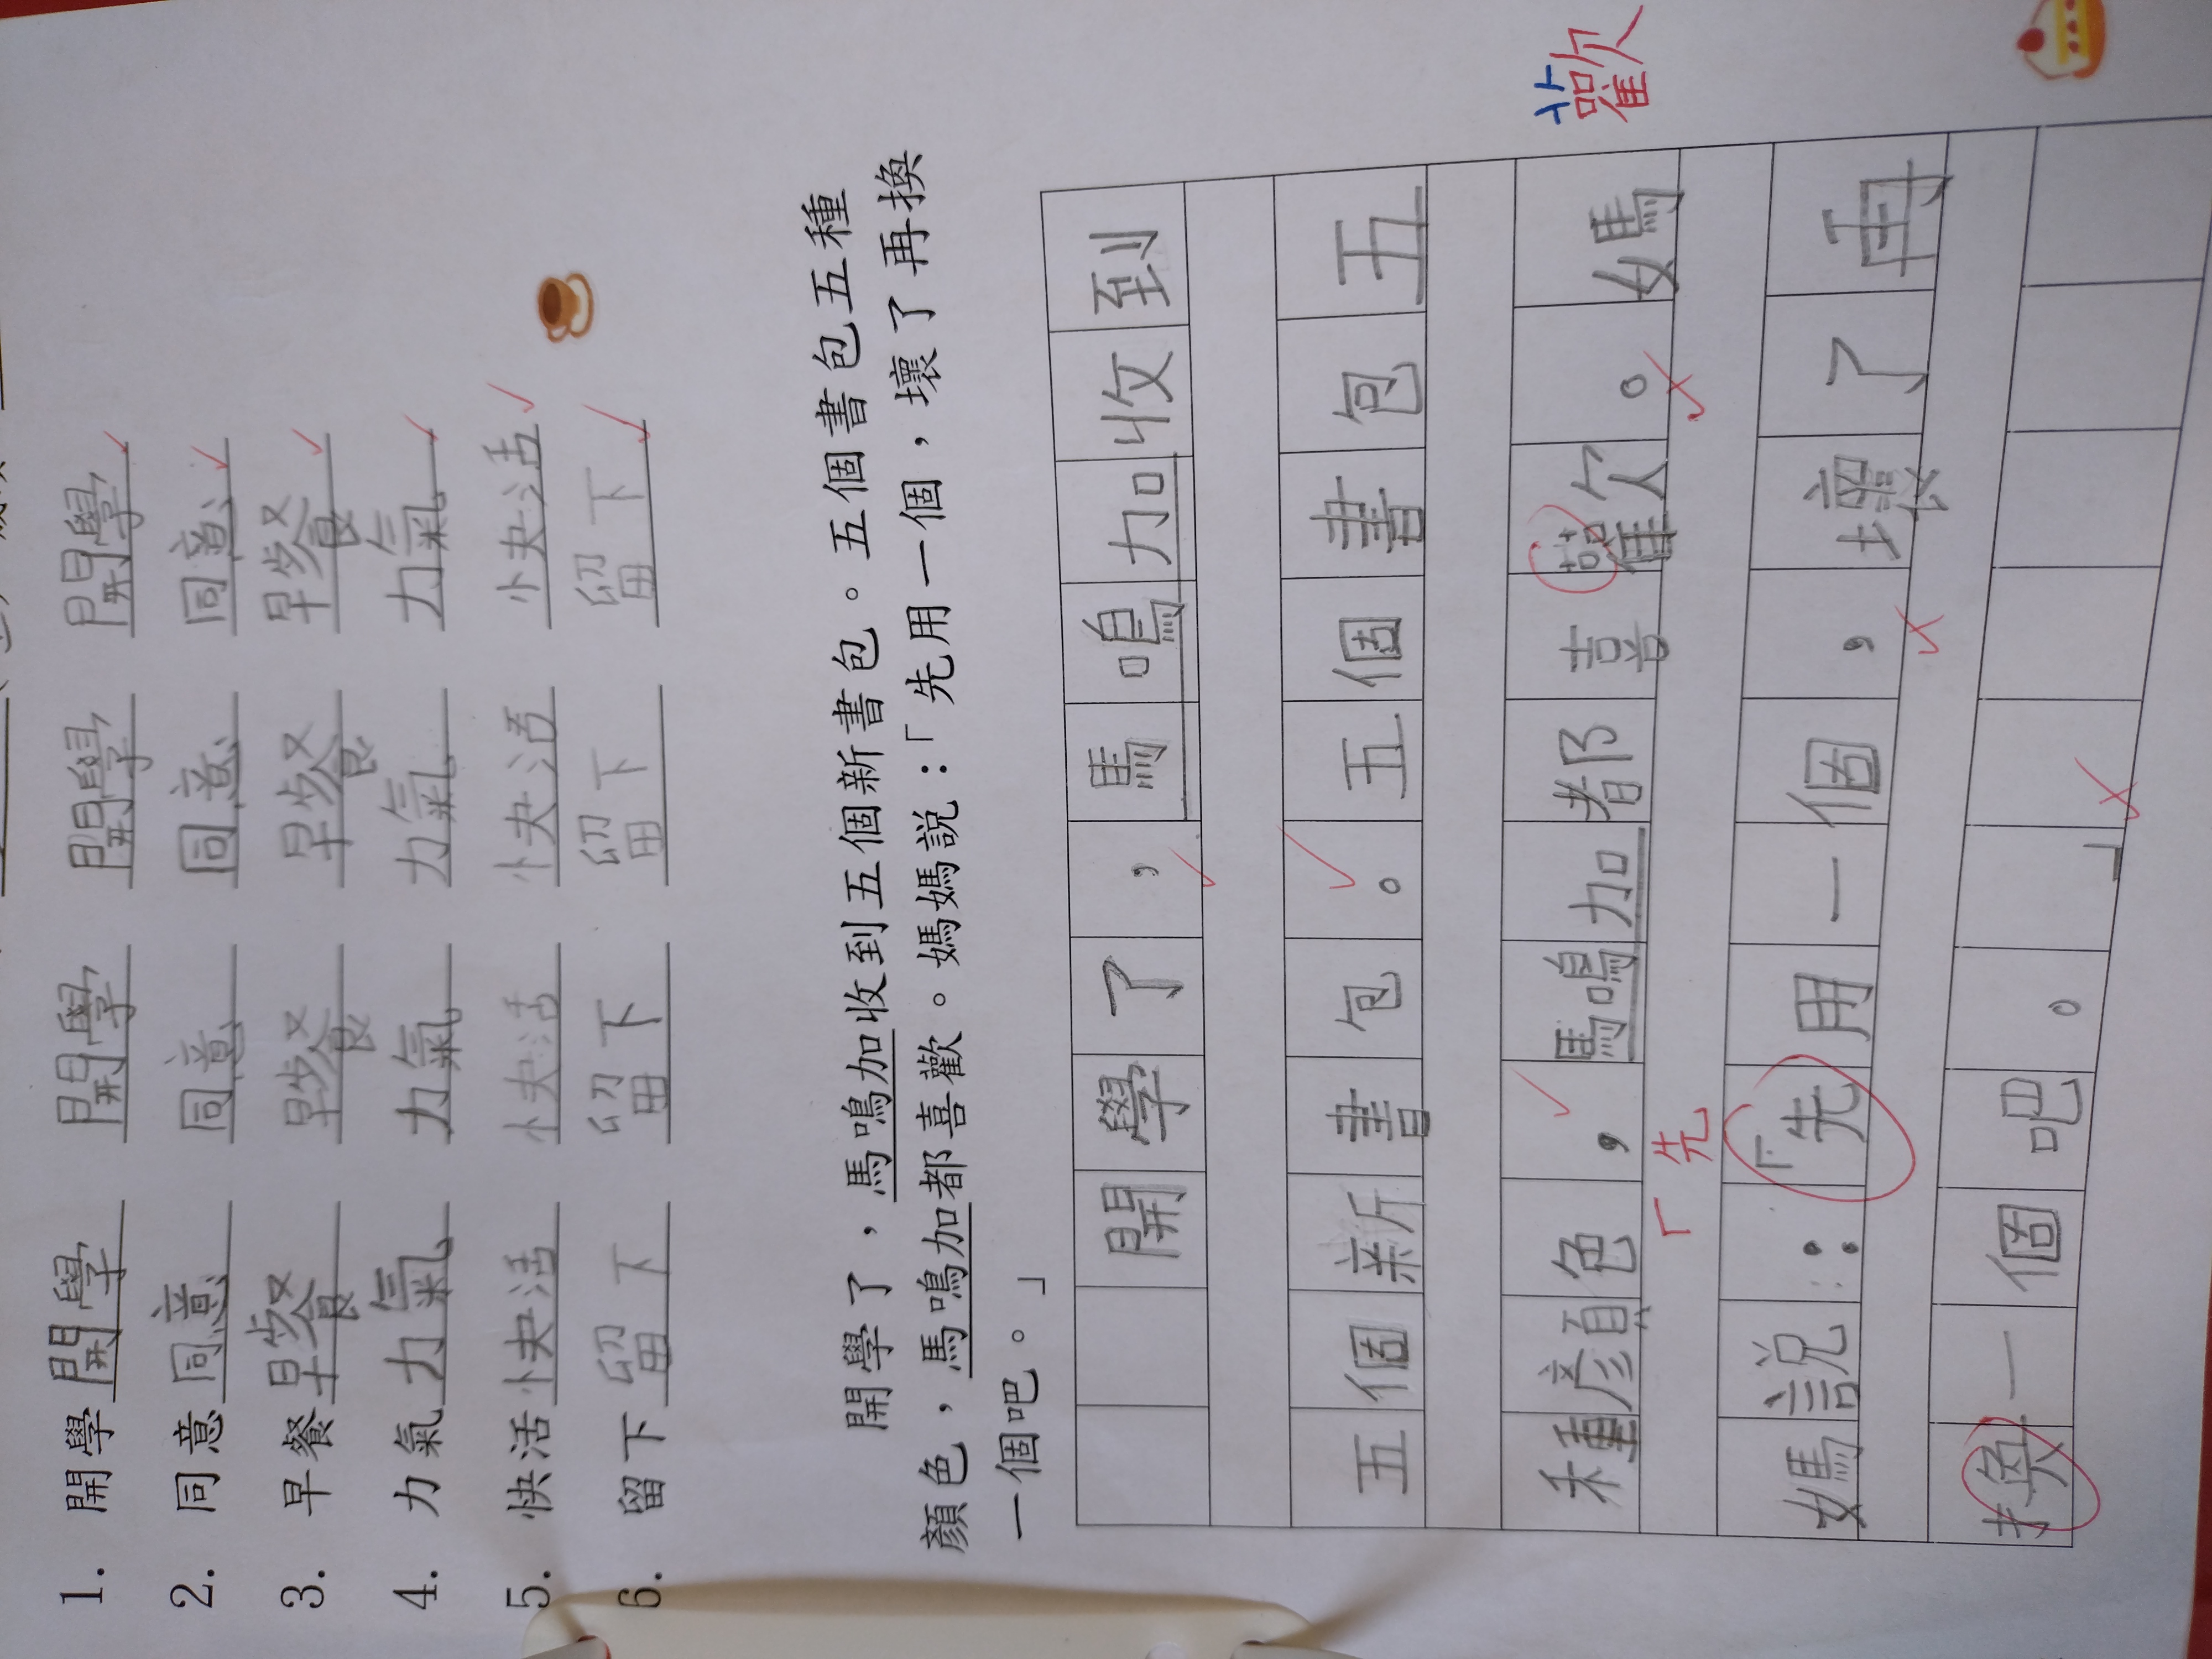 1. 開學 開學 開學 開學 開學
2. 同意 同意 同意 同意 同意
3. 早餐 早餐 早餐 早餐 早餐
4. 力氣 力氣 力氣 力氣 力氣
5. 快活 快活 快活 快活 快活
6. 留下 留下 留下 留下 留下
開學了，馬鳴加收到五個新書包。五個書包五種
顏色，馬鳴加都喜歡。媽媽說：「先用一個，壞了再換
一個吧。」
開學了，馬鳴加收到
五個新書包。五個書包五
種顏色，馬鳴加都喜歡。媽
歡
「先
媽說：「先用一個，壞了再
換一個吧。」